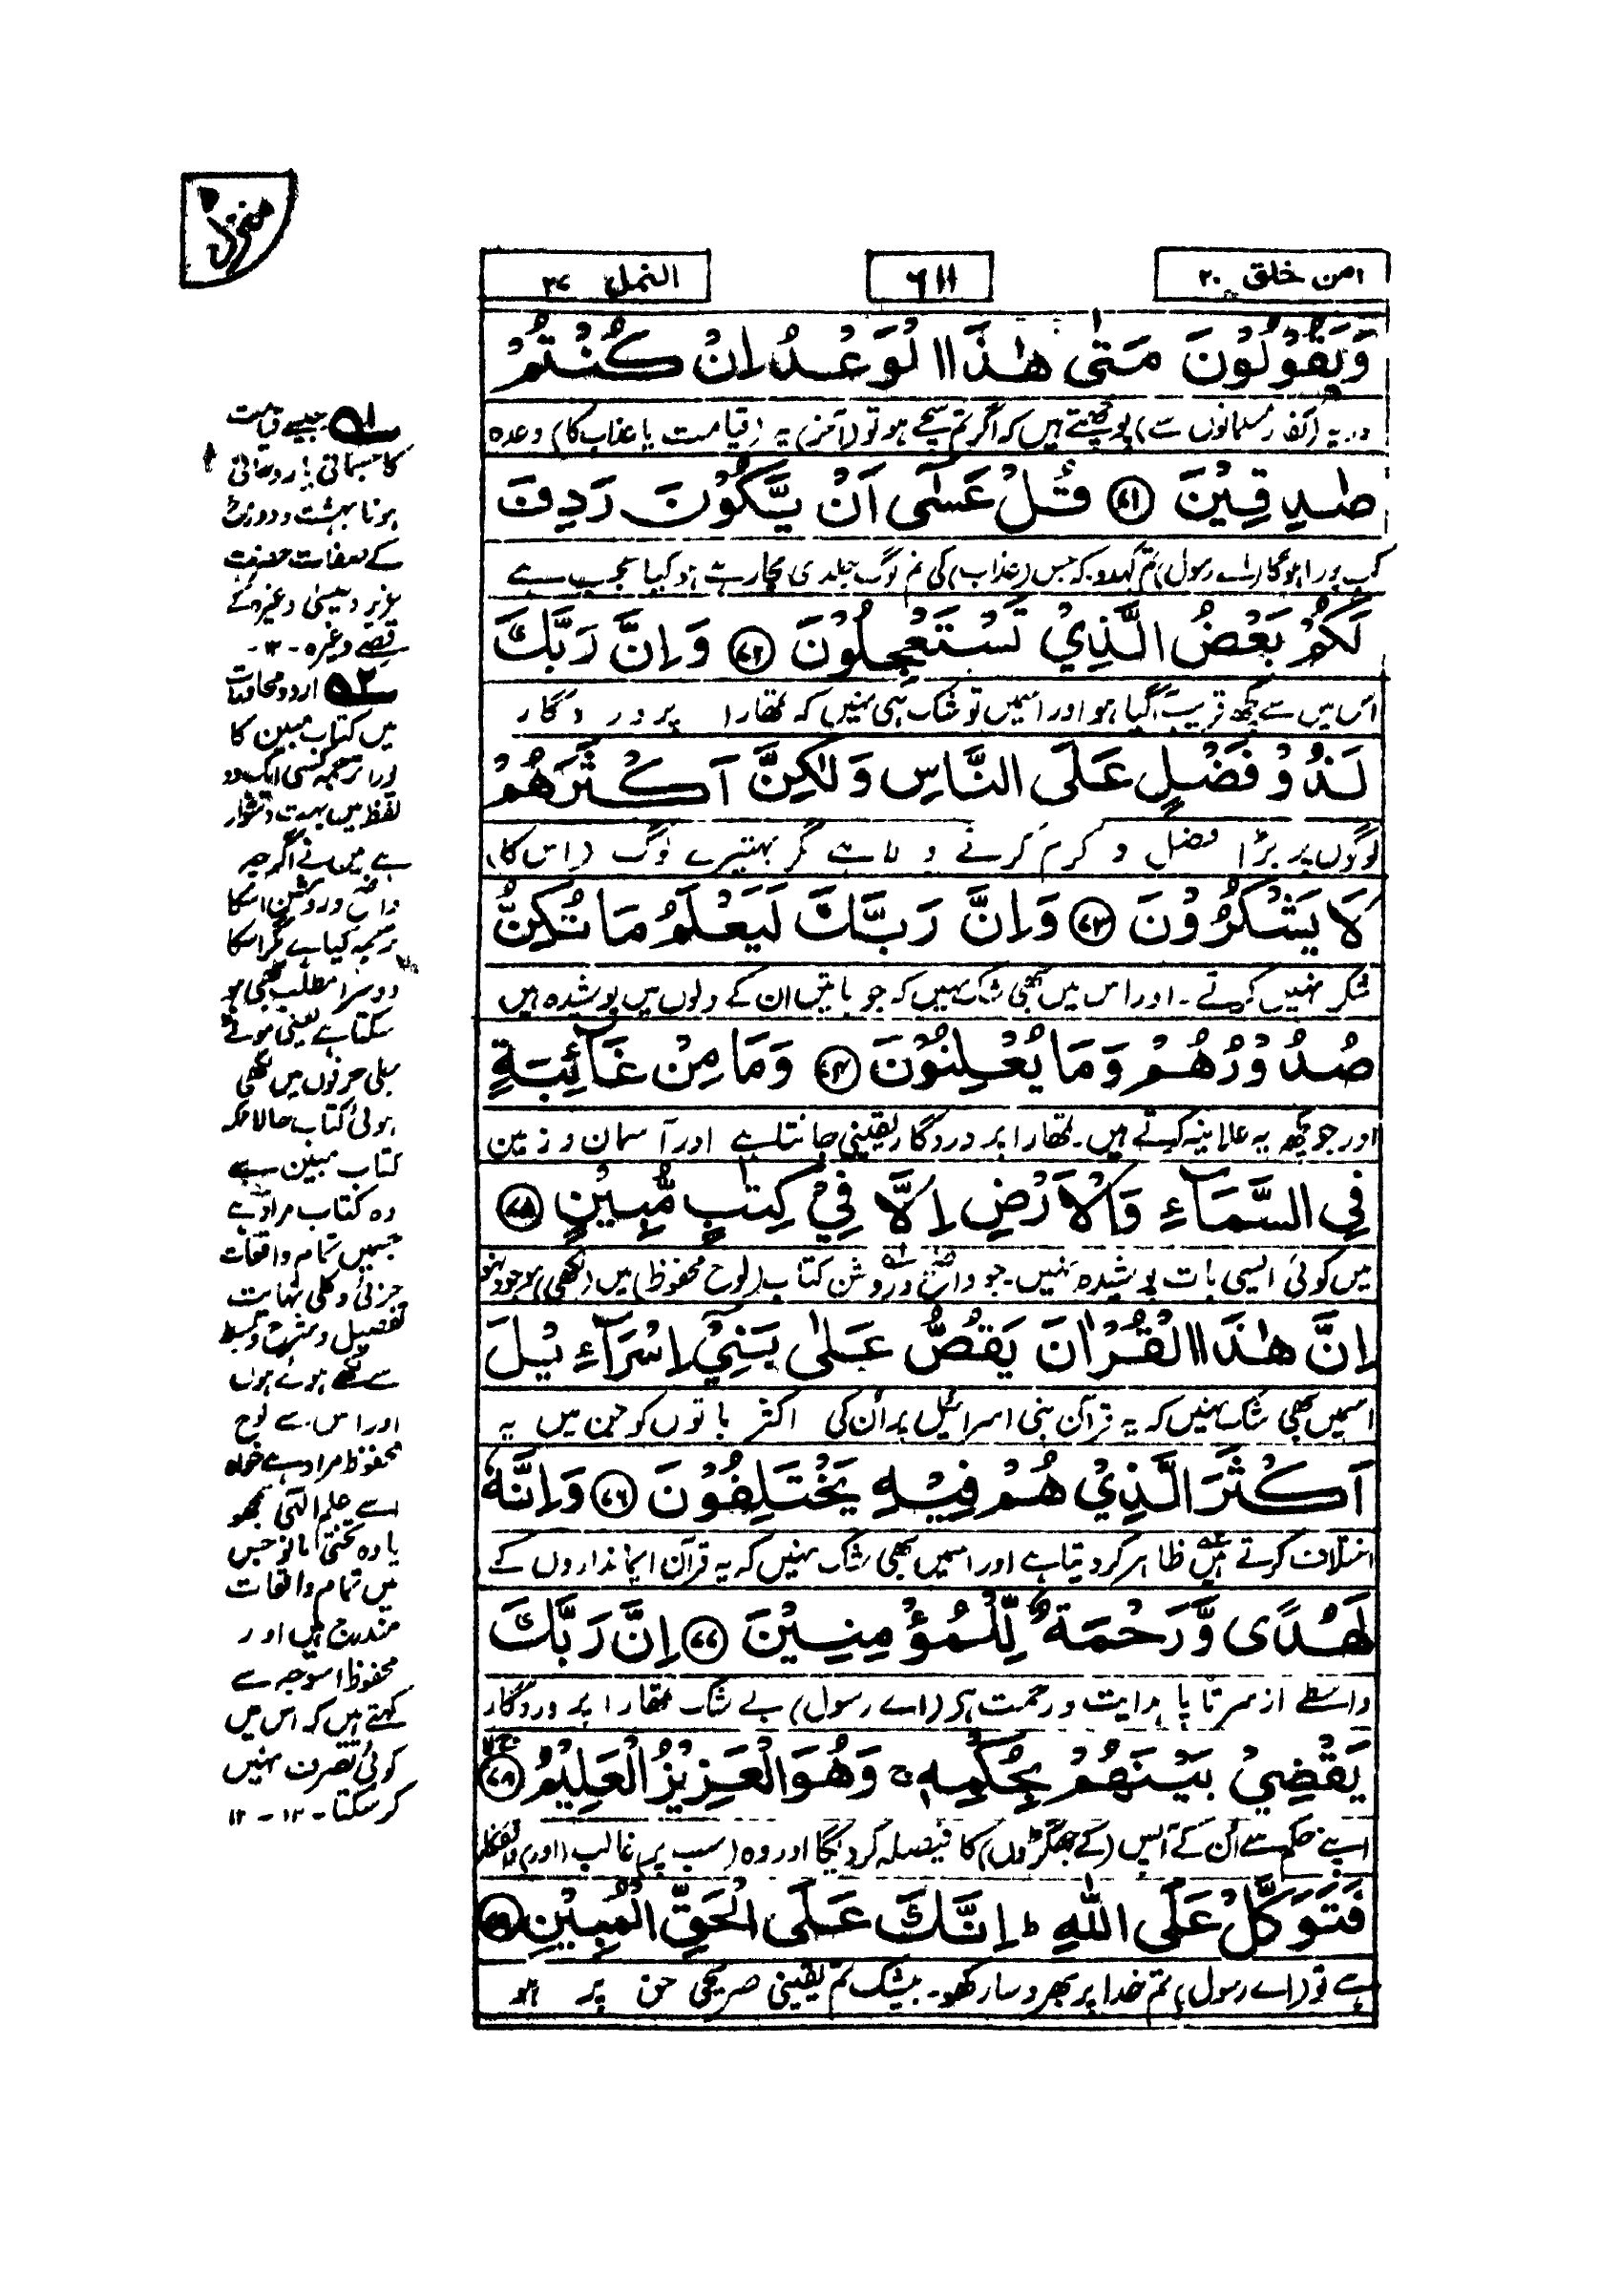 منزل ۵
امن خلق ۲۰
۶۱۱
النمل ۲۷
وَيَقُوْلُوْنَ مَتٰى هٰذَا الْوَعْدُ اِنْ كُنْتُمْ
اور یہ (کفار مسلمانوں سے) پوچھتے ہیں کہ اگر تم سچے ہو تو (آخر) یہ (قیامت یا عذاب کا) وعدہ
صٰدِقِيْنَ ۷۱ قُلْ عَسٰٓى اَنْ يَّكُوْنَ رَدِفَ
کب پورا ہوگا (اے رسول) تم کہدو کہ جس (عذاب) کی تم لوگ جلدی مچا رہے ہو کیا عجب ہے
لَكُمْ بَعْضُ الَّذِيْ تَسْتَعْجِلُوْنَ ۷۲ وَاِنَّ رَبَّكَ
اس میں سے کچھ قریب آگیا ہو اور اسمیں تو شک ہی نہیں کہ تمھارا پروردگار
لَذُوْ فَضْلٍ عَلَى النَّاسِ وَلٰكِنَّ اَكْثَرَهُمْ
لوگوں پر بڑا فضل و کرم کرنے والا ہے مگر بہتیرے لوگ (اس کا)
لَا يَشْكُرُوْنَ ۷۳ وَاِنَّ رَبَّكَ لَيَعْلَمُ مَا تُكِنُّ
شکر نہیں کرتے ۔ اور اس میں بھی شک نہیں کہ جو باتیں ان کے دلوں میں پوشیدہ ہیں
صُدُوْرُهُمْ وَمَا يُعْلِنُوْنَ ۷۴ وَمَا مِنْ غَآئِبَةٍ
اور جو کچھ یہ علانیہ کرتے ہیں۔ تمھارا پروردگار یقینی جانتا ہے اور آسمان و زمین
فِي السَّمَآءِ وَالْاَرْضِ اِلَّا فِيْ كِتٰبٍ مُّبِيْنٍ ۷۵
میں کوئی ایسی بات پوشیدہ نہیں۔ جو واضح و روشن کتاب (لوح محفوظ) میں (لکھی) موجود نہو
اِنَّ هٰذَا الْقُرْاٰنَ يَقُصُّ عَلٰى بَنِيْٓ اِسْرَآءِيْلَ
اسمیں بھی شک نہیں کہ یہ قرآن بنی اسرائیل پر اُن کی اکثر باتوں کو جن میں یہ
اَكْثَرَ الَّذِيْ هُمْ فِيْهِ يَخْتَلِفُوْنَ ۷۶ وَاِنَّهٗ
اختلاف کرتے ہیں ظاہر کر دیتا ہے اور اسمیں بھی شک نہیں کہ یہ قرآن ایمانداروں کے
لَهُدًى وَّرَحْمَةٌ لِّلْمُؤْمِنِيْنَ ۷۷ اِنَّ رَبَّكَ
واسطے از سر تا پا ہدایت و رحمت ہے (اے رسول) بے شک تمھارا پروردگار
يَقْضِيْ بَيْنَهُمْ بِحُكْمِهٖ ۚ وَهُوَ الْعَزِيْزُ الْعَلِيْمُ ۷۸
اپنے حکم سے اُن کے آپس (کے جھگڑوں) کا فیصلہ کر دیگا اور وہ (سب پر) غالب (اور) واقفکار
فَتَوَكَّلْ عَلَى اللّٰهِ ؕ اِنَّكَ عَلَى الْحَقِّ الْمُبِيْنِ ۷۹
ہے تو (اے رسول) تم خدا پر بھروسا رکھو۔ بیشک تم یقینی صریحی حق پر ہو
۱؎ جیسے قیامت
کا جسمانی یا روحانی
ہونا بہشت و دوزخ
کے صفات حضرت
عزیر و عیسیٰ وغیرہ کے
قصے وغیرہ ۔ ۱۲ ۔
۲؎ اردو محاورات
میں کتاب مبین کا
پورا ترجمہ کسی ایک دو
لفظ میں بہت دشوار
ہے میں نے اگرچہ
واضح و روشن اسکا
ترجمہ کیا ہے مگر اسکا
دوسرا مطلب بھی ہو
سکتا ہے یعنی موٹے
جلی حرفوں میں لکھی
ہوئی کتاب حالانکہ
کتاب مبین سے
وہ کتاب مراد ہے
جسمیں تمام واقعات
جزئی و کلی نہایت
تفصیل و شرح و بسط
سے لکھے ہوئے ہوں
اور اس سے لوح
محفوظ مراد ہے خواہ
اسے علم الٰہی سمجھو
یا وہ تختی مانو جس
میں تمام واقعات
مندرج ہیں اور
محفوظ اسوجہ سے
کہتے ہیں کہ اس میں
کوئی تصرف نہیں
کر سکتا ۔ ۱۲ ۔ ۱۲